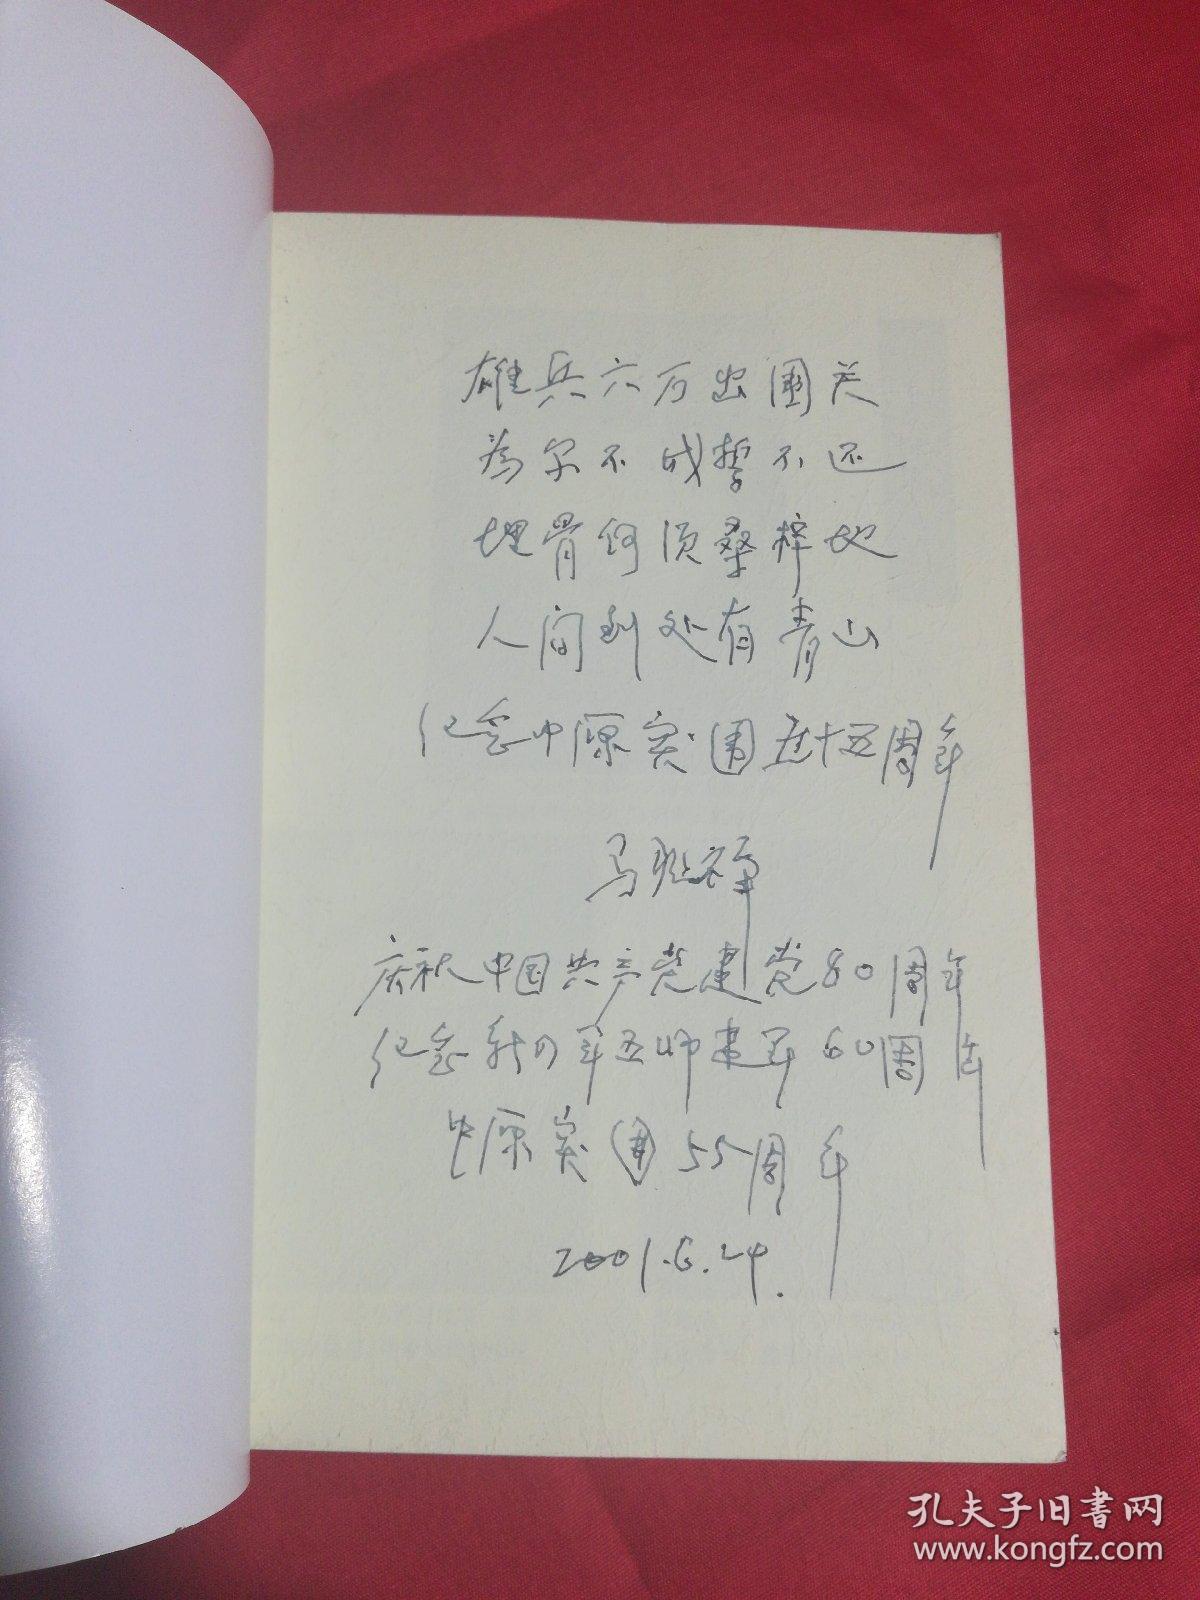 雄兵六万出围关
为尔不成誓不还
埋骨何须桑梓地
人间到处有青山
纪念中原突围五十五周年
马
庆祝中国共产党建党80周年
纪念新四军五师建军60周年
中原突围55周年
2001.6.24.
孔夫子旧书网
www.kongfz.com